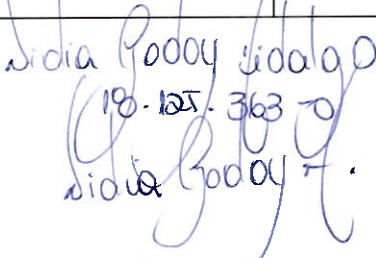 Nidia Godoy Hidalgo
18.127.363-0
Nidia Godoy H.